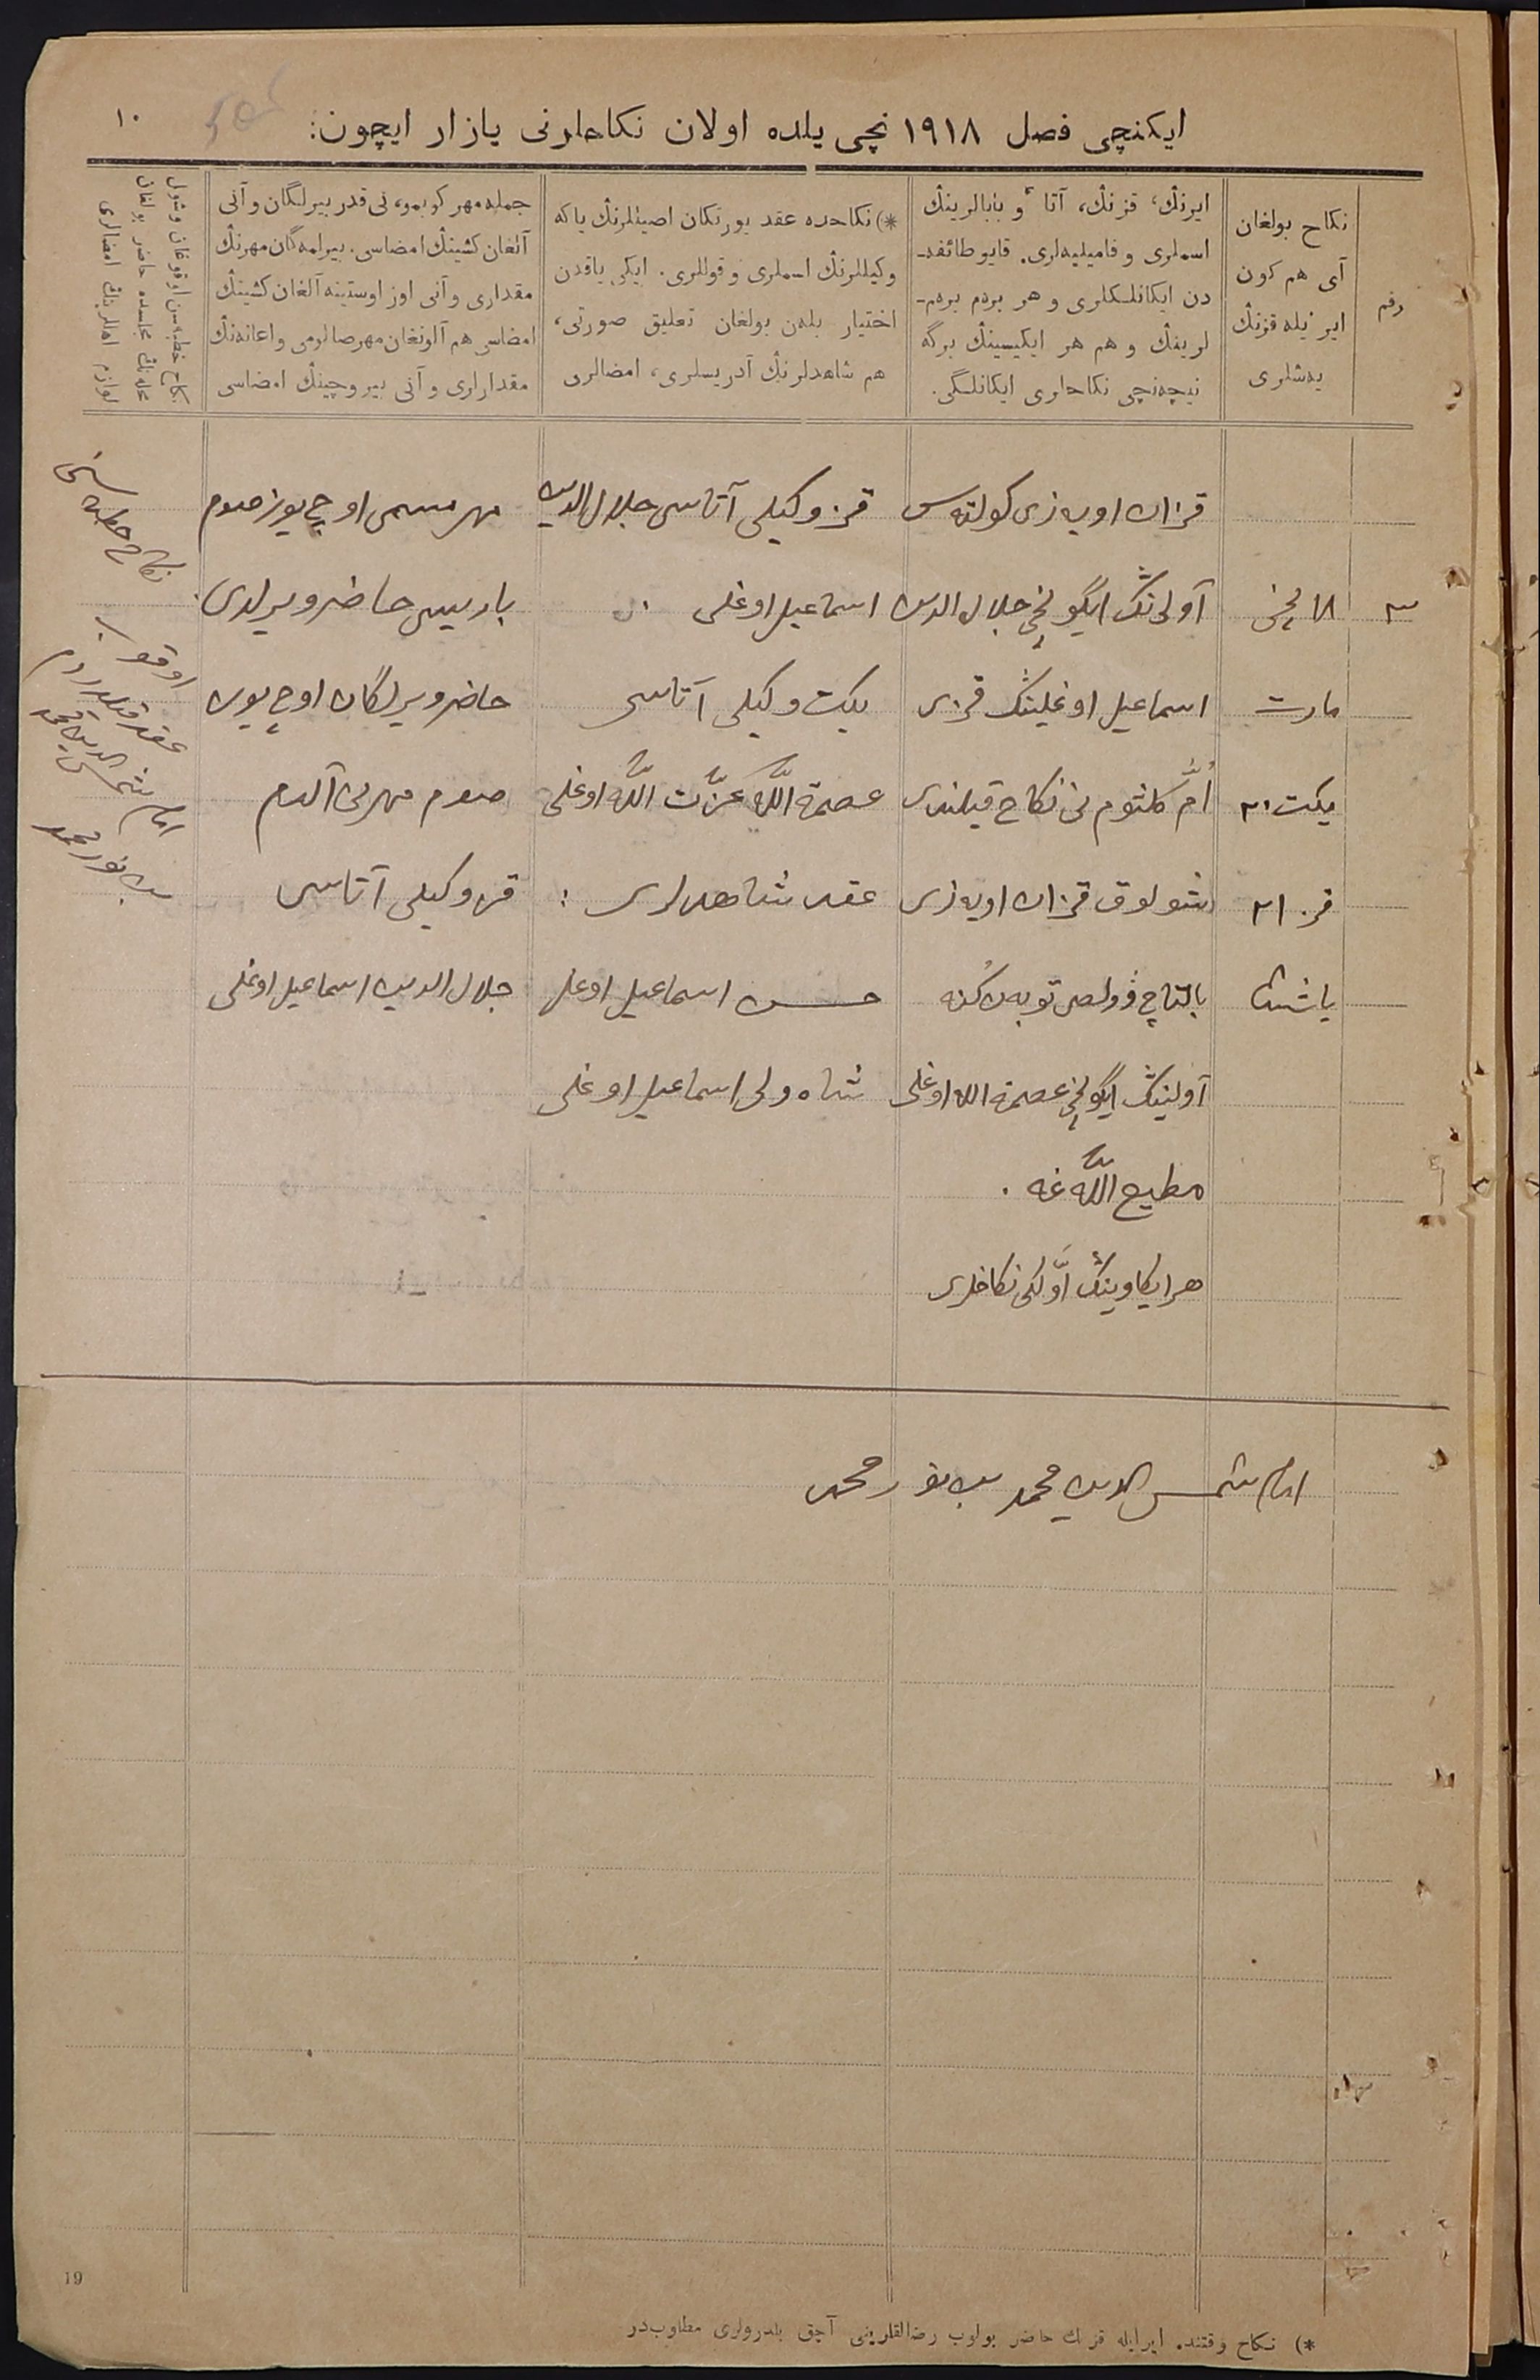 ١٠
ايكنچی فصل ١٩١٨ نچی يلده اولان نكاحلرنی يازار ايچون:
رقم
نكاح بولغان
آی هم كون
اير ئيله قزنڭ
يەشلری
ايرنڭ، قزنڭ، آتا و بابالرينڭ
اسملری و فاميليەلری. قايو طائفه‌ـ
دن ايكانلكلری و هر بردم بردم‌ـ
لريڭ و هم هر ايكيسينڭ برگه
نيچەنچی نكاحلری ايكانلگی.
*) نكاحده عقد يورتكان اصيللرنڭ ياكه
وكيللرنڭ اسملری و قوللری. ايكی ياقدن
اختيار بلەن بولغان تعليق صورتی،
هم شاهدلرنڭ آدريسلری، امضالری
جمله مهر كوبمو، نی قدر بيرلگان و آنی
آلغان كشينڭ امضاسی. بيرلمه‌گان مهرنڭ
مقداری و آنی اوز اوستينه آلغان كشينڭ
امضاسی هم آلونغان مهر صالومی و اعانه‌نڭ
مقدارلری و آنی بيروچينڭ امضاسی
نكاح خطبه‌سن اوقوغان وشول
مجلسده حاضر بولغان
امضالری
٣
١٨ نچی
مارت
يكت ٢٠
قز ٢١
ياشنده
قزان اويەزی
آولی‌نڭ ايگونچی جلال الدين
اسماعيل اوغلينڭ قزی
اُمّ كلثوم نی نكاح قيلندی
شولوق قزان اويەزی
بالتاچ وولصی توبەن
آولينڭ ايگونچی عصمة الله اوغلی
مطيع اللّه غه .
هر ايكاوينڭ اوّلگی نكاحلری
قز وكيلی آتاسی جلال الدين
اسماعيل اوغلی
يكت وكيلی آتاسی
عصمة اللّه عزّت اللّه اوغلی
عقد شاهدلری :
حسن اسماعيل اوغلی
شاه ولی اسماعيل اوغلی
مهر مسمی اوچ يوز صوم
باريسی حاضر ويرلدی.
حاضر ويرلگان اوچ يوز
صوم مهرنی آلدم
قز وكيلی آتاسی
جلال الدين اسماعيل اوغلی
نكاح خطبه سنی
اوقوب
عقد قيلدردم
امام شمس الدين محمد
بن نورمحمد
امام شمس الدين محمد بن نور محمد
19
*) نكاح وقتنده اير ايله قزنڭ حاضر بولوب رضالقلرينی آچق بلدرولری مطلوب‌در